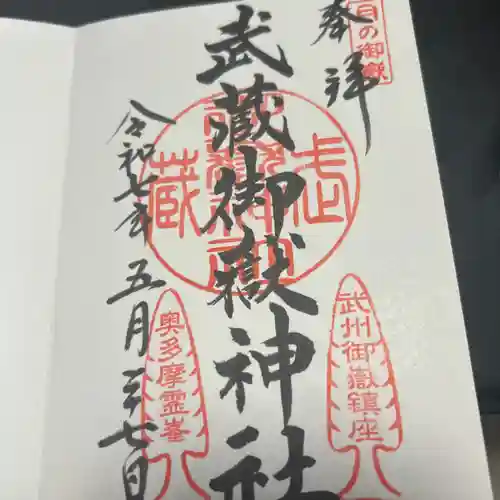 奉拝
月の御嶽
武蔵御嶽神社
武蔵
武州御嶽鎮座
奥多摩霊峯
令和七年五月二十七日